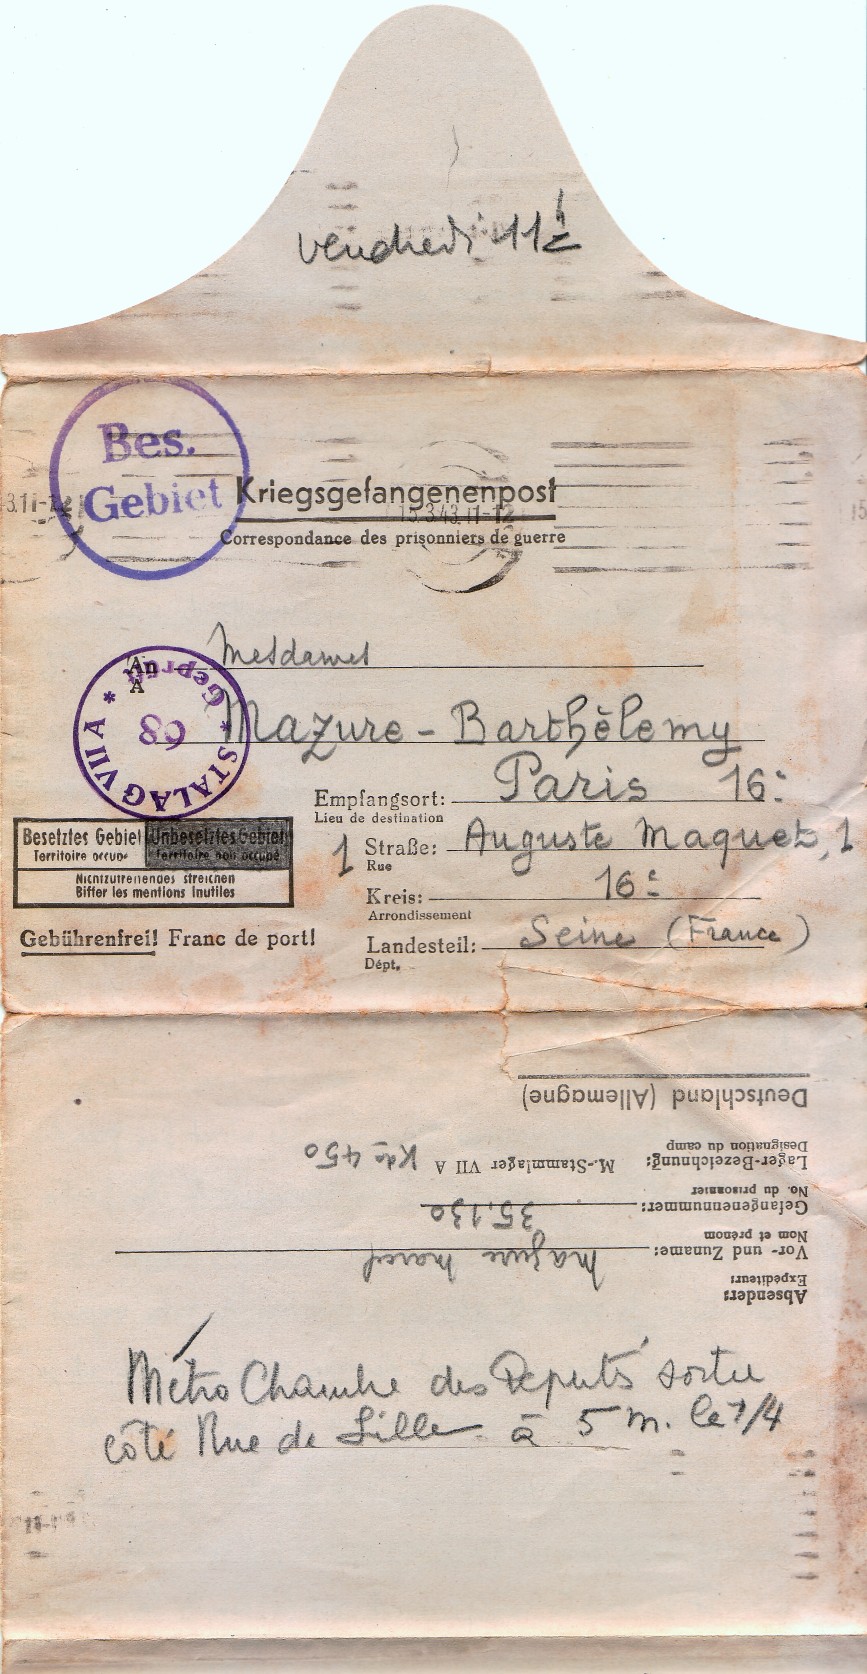 vendredi 11h ½
Bes.
Gebiet
Kriegsgefangenenpost
15.3.43.11-12
Correspondance des prisonniers de guerre
An
A
Mesdames
Mazure - Barthèlemy
Geprüft
68
* STALAG VII A *
Empfangsort: Paris 16e
Lieu de destination
1 Straße: Auguste Maquet, 1
Rue
Kreis: 16e
Arrondissement
Landesteil: Seine (France)
Dépt.
Besetztes Gebiet Unbesetztes Gebiet
Territoire occupé Territoire non occupé
Nichtzutreffendes streichen
Biffer les mentions inutiles
Gebührenfrei! Franc de port!
Absender:
Expéditeur:
Vor- und Zuname: Mazure Marcel
Nom et prénom
Gefangenennummer: 35.130
No. du prisonnier
Lager-Bezeichnung: M.-Stammlager VII A Kdo 450
Désignation du camp
Deutschland (Allemagne)
Métro Chambre des Députés sortie
côté Rue de Lille à 5 m. le 7/4